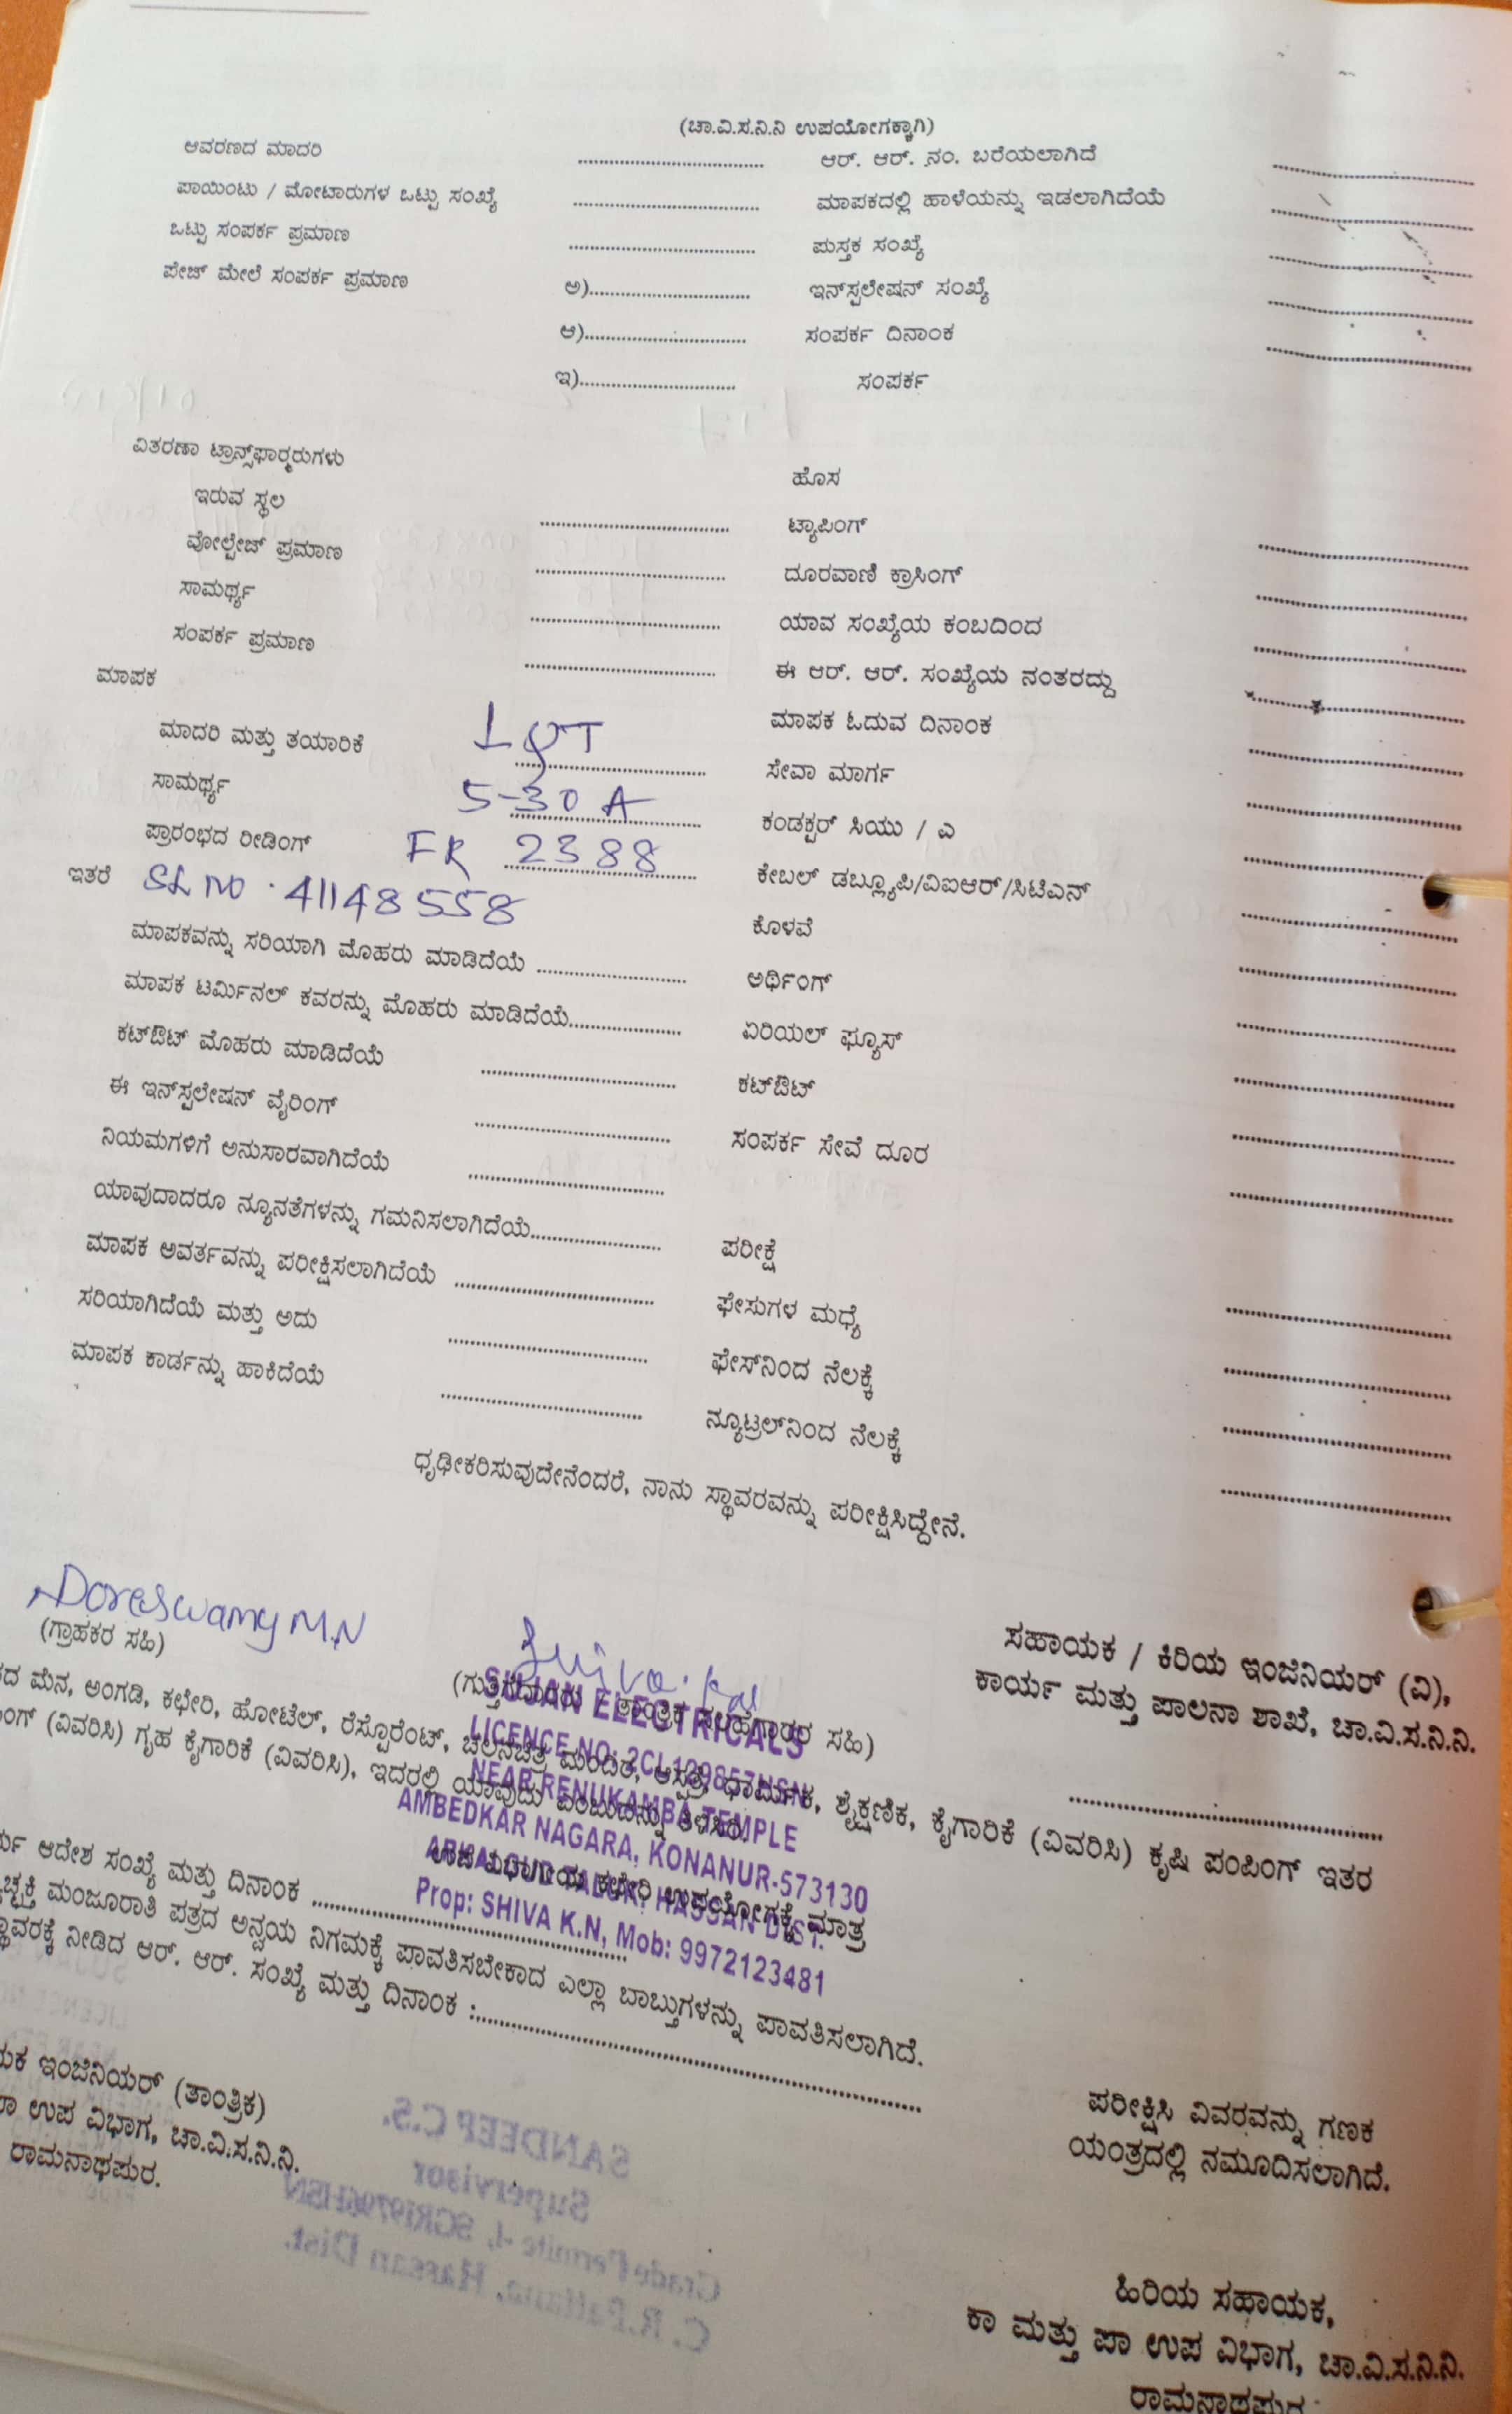 (ಚಾ.ವಿ.ಸ.ನಿ.ನಿ ಉಪಯೋಗಕ್ಕಾಗಿ)
ಆವರಣದ ಮಾದರಿ .................... ಆರ್. ಆರ್. ನಂ. ಬರೆಯಲಾಗಿದೆ ....................
ಪಾಯಿಂಟು / ಮೋಟಾರುಗಳ ಒಟ್ಟು ಸಂಖ್ಯೆ .................... ಮಾಪಕದಲ್ಲಿ ಹಾಳೆಯನ್ನು ಇಡಲಾಗಿದೆಯೆ ....................
ಒಟ್ಟು ಸಂಪರ್ಕ ಪ್ರಮಾಣ .................... ಪುಸ್ತಕ ಸಂಖ್ಯೆ ....................
ಪೇಜ್ ಮೇಲೆ ಸಂಪರ್ಕ ಪ್ರಮಾಣ ಅ).................... ಇನ್‌ಸ್ಪಲೇಷನ್ ಸಂಖ್ಯೆ ....................
ಆ).................... ಸಂಪರ್ಕ ದಿನಾಂಕ ....................
ಇ).................... ಸಂಪರ್ಕ
ವಿತರಣಾ ಟ್ರಾನ್ಸ್‌ಫಾರ್ಮರುಗಳು ಹೊಸ
ಇರುವ ಸ್ಥಲ .................... ಟ್ಯಾಪಿಂಗ್ ....................
ವೋಲ್ಟೇಜ್ ಪ್ರಮಾಣ .................... ದೂರವಾಣಿ ಕ್ರಾಸಿಂಗ್ ....................
ಸಾಮರ್ಥ್ಯ .................... ಯಾವ ಸಂಖ್ಯೆಯ ಕಂಬದಿಂದ ....................
ಸಂಪರ್ಕ ಪ್ರಮಾಣ .................... ಈ ಆರ್. ಆರ್. ಸಂಖ್ಯೆಯ ನಂತರದ್ದು ....................
ಮಾಪಕ ಮಾಪಕ ಓದುವ ದಿನಾಂಕ ....................
ಮಾದರಿ ಮತ್ತು ತಯಾರಿಕೆ L&T ಸೇವಾ ಮಾರ್ಗ ....................
ಸಾಮರ್ಥ್ಯ 5-30 A ಕಂಡಕ್ಟರ್ ಸಿಯು / ಎ ....................
ಪ್ರಾರಂಭದ ರೀಡಿಂಗ್ FR 2388 ಕೇಬಲ್ ಡಬ್ಲ್ಯೂಪಿ/ವಿಐಆರ್/ಸಿಟಿಎನ್ ....................
ಇತರೆ SL NO. 41148558 ಕೊಳವೆ ....................
ಮಾಪಕವನ್ನು ಸರಿಯಾಗಿ ಮೊಹರು ಮಾಡಿದೆಯೆ .................... ಅರ್ಥಿಂಗ್ ....................
ಮಾಪಕ ಟರ್ಮಿನಲ್ ಕವರನ್ನು ಮೊಹರು ಮಾಡಿದೆಯೆ.................... ಏರಿಯಲ್ ಫ್ಯೂಸ್ ....................
ಕಟ್‌ಔಟ್ ಮೊಹರು ಮಾಡಿದೆಯೆ .................... ಕಟ್‌ಔಟ್ ....................
ಈ ಇನ್‌ಸ್ಪಲೇಷನ್ ವೈರಿಂಗ್ .................... ಸಂಪರ್ಕ ಸೇವೆ ದೂರ ....................
ನಿಯಮಗಳಿಗೆ ಅನುಸಾರವಾಗಿದೆಯೆ ....................
ಯಾವುದಾದರೂ ನ್ಯೂನತೆಗಳನ್ನು ಗಮನಿಸಲಾಗಿದೆಯೆ.................... ಪರೀಕ್ಷೆ
ಮಾಪಕ ಅವರ್ತವನ್ನು ಪರೀಕ್ಷಿಸಲಾಗಿದೆಯೆ .................... ಫೇಸುಗಳ ಮಧ್ಯೆ ....................
ಸರಿಯಾಗಿದೆಯೆ ಮತ್ತು ಅದು .................... ಫೇಸ್‌ನಿಂದ ನೆಲಕ್ಕೆ ....................
ಮಾಪಕ ಕಾರ್ಡನ್ನು ಹಾಕಿದೆಯೆ .................... ನ್ಯೂಟ್ರಲ್‌ನಿಂದ ನೆಲಕ್ಕೆ ....................
ಧೃಢೀಕರಿಸುವುದೇನೆಂದರೆ, ನಾನು ಸ್ಥಾವರವನ್ನು ಪರೀಕ್ಷಿಸಿದ್ದೇನೆ.
Doreswamy M.N
(ಗ್ರಾಹಕರ ಸಹಿ)
(ಗುತ್ತಿಗೆದಾರರು / ತಾಂತ್ರಿಕ ಸಲಹೆಗಾರರ ಸಹಿ)
ಸಹಾಯಕ / ಕಿರಿಯ ಇಂಜಿನಿಯರ್ (ವಿ),
ಕಾರ್ಯ ಮತ್ತು ಪಾಲನಾ ಶಾಖೆ, ಚಾ.ವಿ.ಸ.ನಿ.ನಿ.
SUJAN ELECTRICALS
LICENCE NO:
NEAR RENUKAMBA TEMPLE
AMBEDKAR NAGARA, KONANUR-573130
ARKALGUD TALUK, HASSAN DIST.
Prop: SHIVA K.N, Mob: 9972123481
ಮನೆ, ಅಂಗಡಿ, ಕಛೇರಿ, ಹೋಟೆಲ್, ರೆಸ್ಟೊರೆಂಟ್, ಚಲನಚಿತ್ರ ಮಂದಿರ, ಆಸ್ಪತ್ರೆ, ಧಾರ್ಮಿಕ, ಶೈಕ್ಷಣಿಕ, ಕೈಗಾರಿಕೆ (ವಿವರಿಸಿ) ಕೃಷಿ ಪಂಪಿಂಗ್ ಇತರ
(ವಿವರಿಸಿ) ಗೃಹ ಕೈಗಾರಿಕೆ (ವಿವರಿಸಿ), ಇದರಲ್ಲಿ ಯಾವುದು ಎಂಬುದನ್ನು ತಿಳಿಸಿರಿ.
ಉಪ ವಿಭಾಗೀಯ ಕಛೇರಿ ಉಪಯೋಗಕ್ಕೆ ಮಾತ್ರ
ಆದೇಶ ಸಂಖ್ಯೆ ಮತ್ತು ದಿನಾಂಕ ....................
ಮಂಜೂರಾತಿ ಪತ್ರದ ಅನ್ವಯ ನಿಗಮಕ್ಕೆ ಪಾವತಿಸಬೇಕಾದ ಎಲ್ಲಾ ಬಾಬ್ತುಗಳನ್ನು ಪಾವತಿಸಲಾಗಿದೆ.
ನೀಡಿದ ಆರ್. ಆರ್. ಸಂಖ್ಯೆ ಮತ್ತು ದಿನಾಂಕ :....................
ಇಂಜಿನಿಯರ್ (ತಾಂತ್ರಿಕ)
ಉಪ ವಿಭಾಗ, ಚಾ.ವಿ.ಸ.ನಿ.ನಿ.
ರಾಮನಾಥಪುರ.
ಪರೀಕ್ಷಿಸಿ ವಿವರವನ್ನು ಗಣಕ
ಯಂತ್ರದಲ್ಲಿ ನಮೂದಿಸಲಾಗಿದೆ.
SANDEEP C.S.
Supervisor
C. R.Pattana, Hassan Dist.
ಹಿರಿಯ ಸಹಾಯಕ,
ಕಾ ಮತ್ತು ಪಾ ಉಪ ವಿಭಾಗ, ಚಾ.ವಿ.ಸ.ನಿ.ನಿ.
ರಾಮನಾಥಪುರ